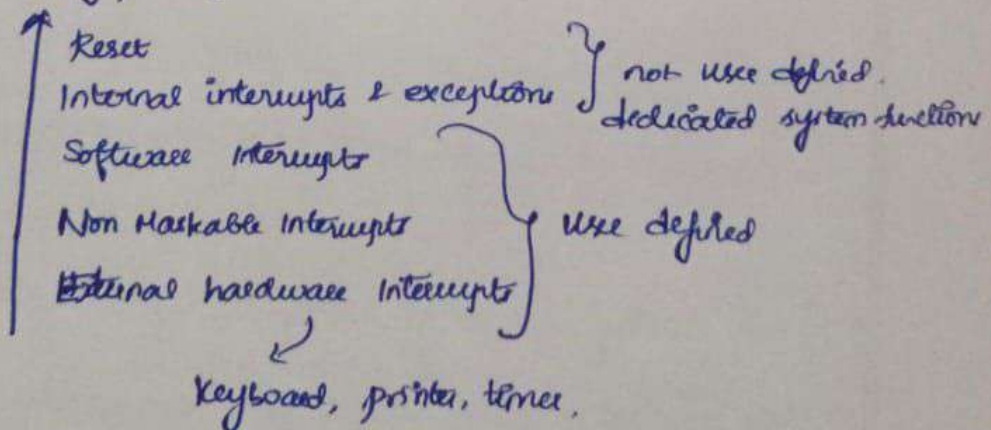 Reset
Internal interrupts & exceptions
not user defined.
dedicated system function
Software Interrupts
Non Maskable Interrupts
User defined
External hardware Interrupts
Keyboard, printer, timer.